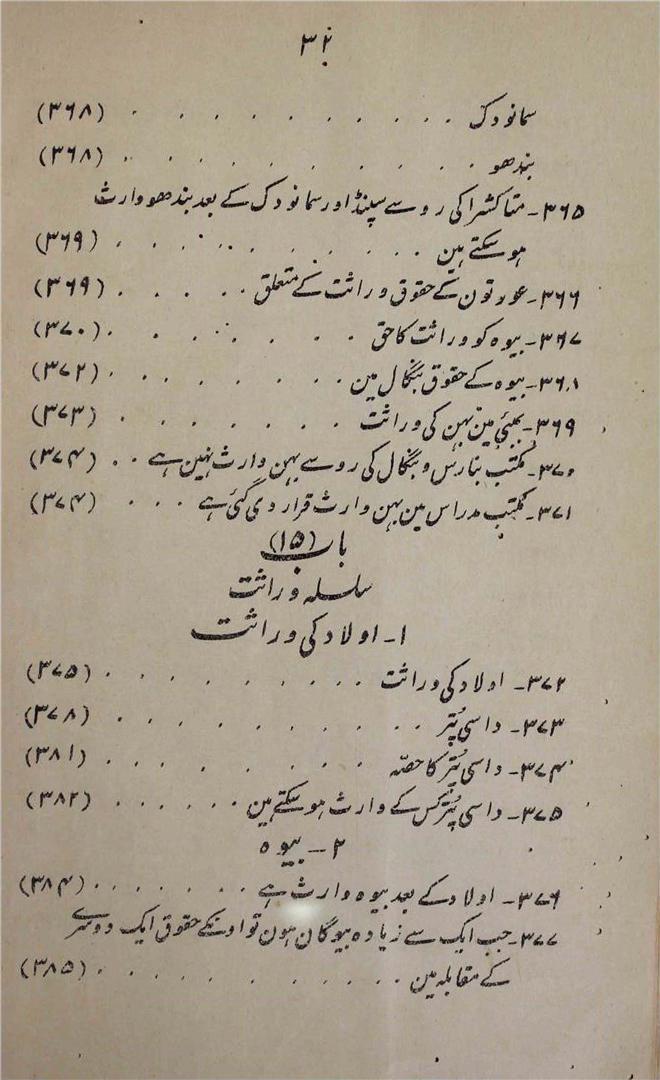 ۳۲
سمانودک . . . . . . . . . . (۳۶۸)
بندھو . . . . . . . . . . (۳۶۸)
۳۶۵۔ متاکشرا کی رو سے سپنڈ اور سمانودک کے بعد بندھو وارث
ہو سکتے ہین . . . . . . . . . . (۳۶۹)
۳۶۶۔ عورتون کے حقوق وراثت کے متعلق . . . . . (۳۶۹)
۳۶۷۔ بیوہ کو وراثت کا حق . . . . . . . . (۳۷۰)
۳۶۸۔ بیوہ کے حقوق بنگال مین . . . . . . . . (۳۷۲)
۳۶۹۔ بمبئی مین بہن کی وراثت . . . . . . . . (۳۷۳)
۳۷۰۔ مکتب بنارس و بنگال کی رو سے بہن وارث نہین ہے . . (۳۷۴)
۳۷۱۔ مکتب مدراس مین بہن وارث قرار دی گئی ہے . . . (۳۷۴)
باب (۱۵)
سلسلہ وراثت
۱۔ اولاد کی وراثت
۳۷۲۔ اولاد کی وراثت . . . . . . . . . (۳۷۵)
۳۷۳۔ داسی پُتر . . . . . . . . . . (۳۷۸)
۳۷۴۔ داسی پُتر کا حصّہ . . . . . . . . (۳۸۱)
۳۷۵۔ داسی پُتر کس کے وارث ہو سکتے ہین . . . . . . (۳۸۲)
۲۔ بیوہ
۳۷۶۔ اولاد کے بعد بیوہ وارث ہے . . . . . . . (۳۸۴)
۳۷۷۔ جب ایک سے زیادہ بیوگان ہون تو اونکے حقوق ایک دوسرے
کے مقابلہ مین . . . . . . . . . . (۳۸۵)